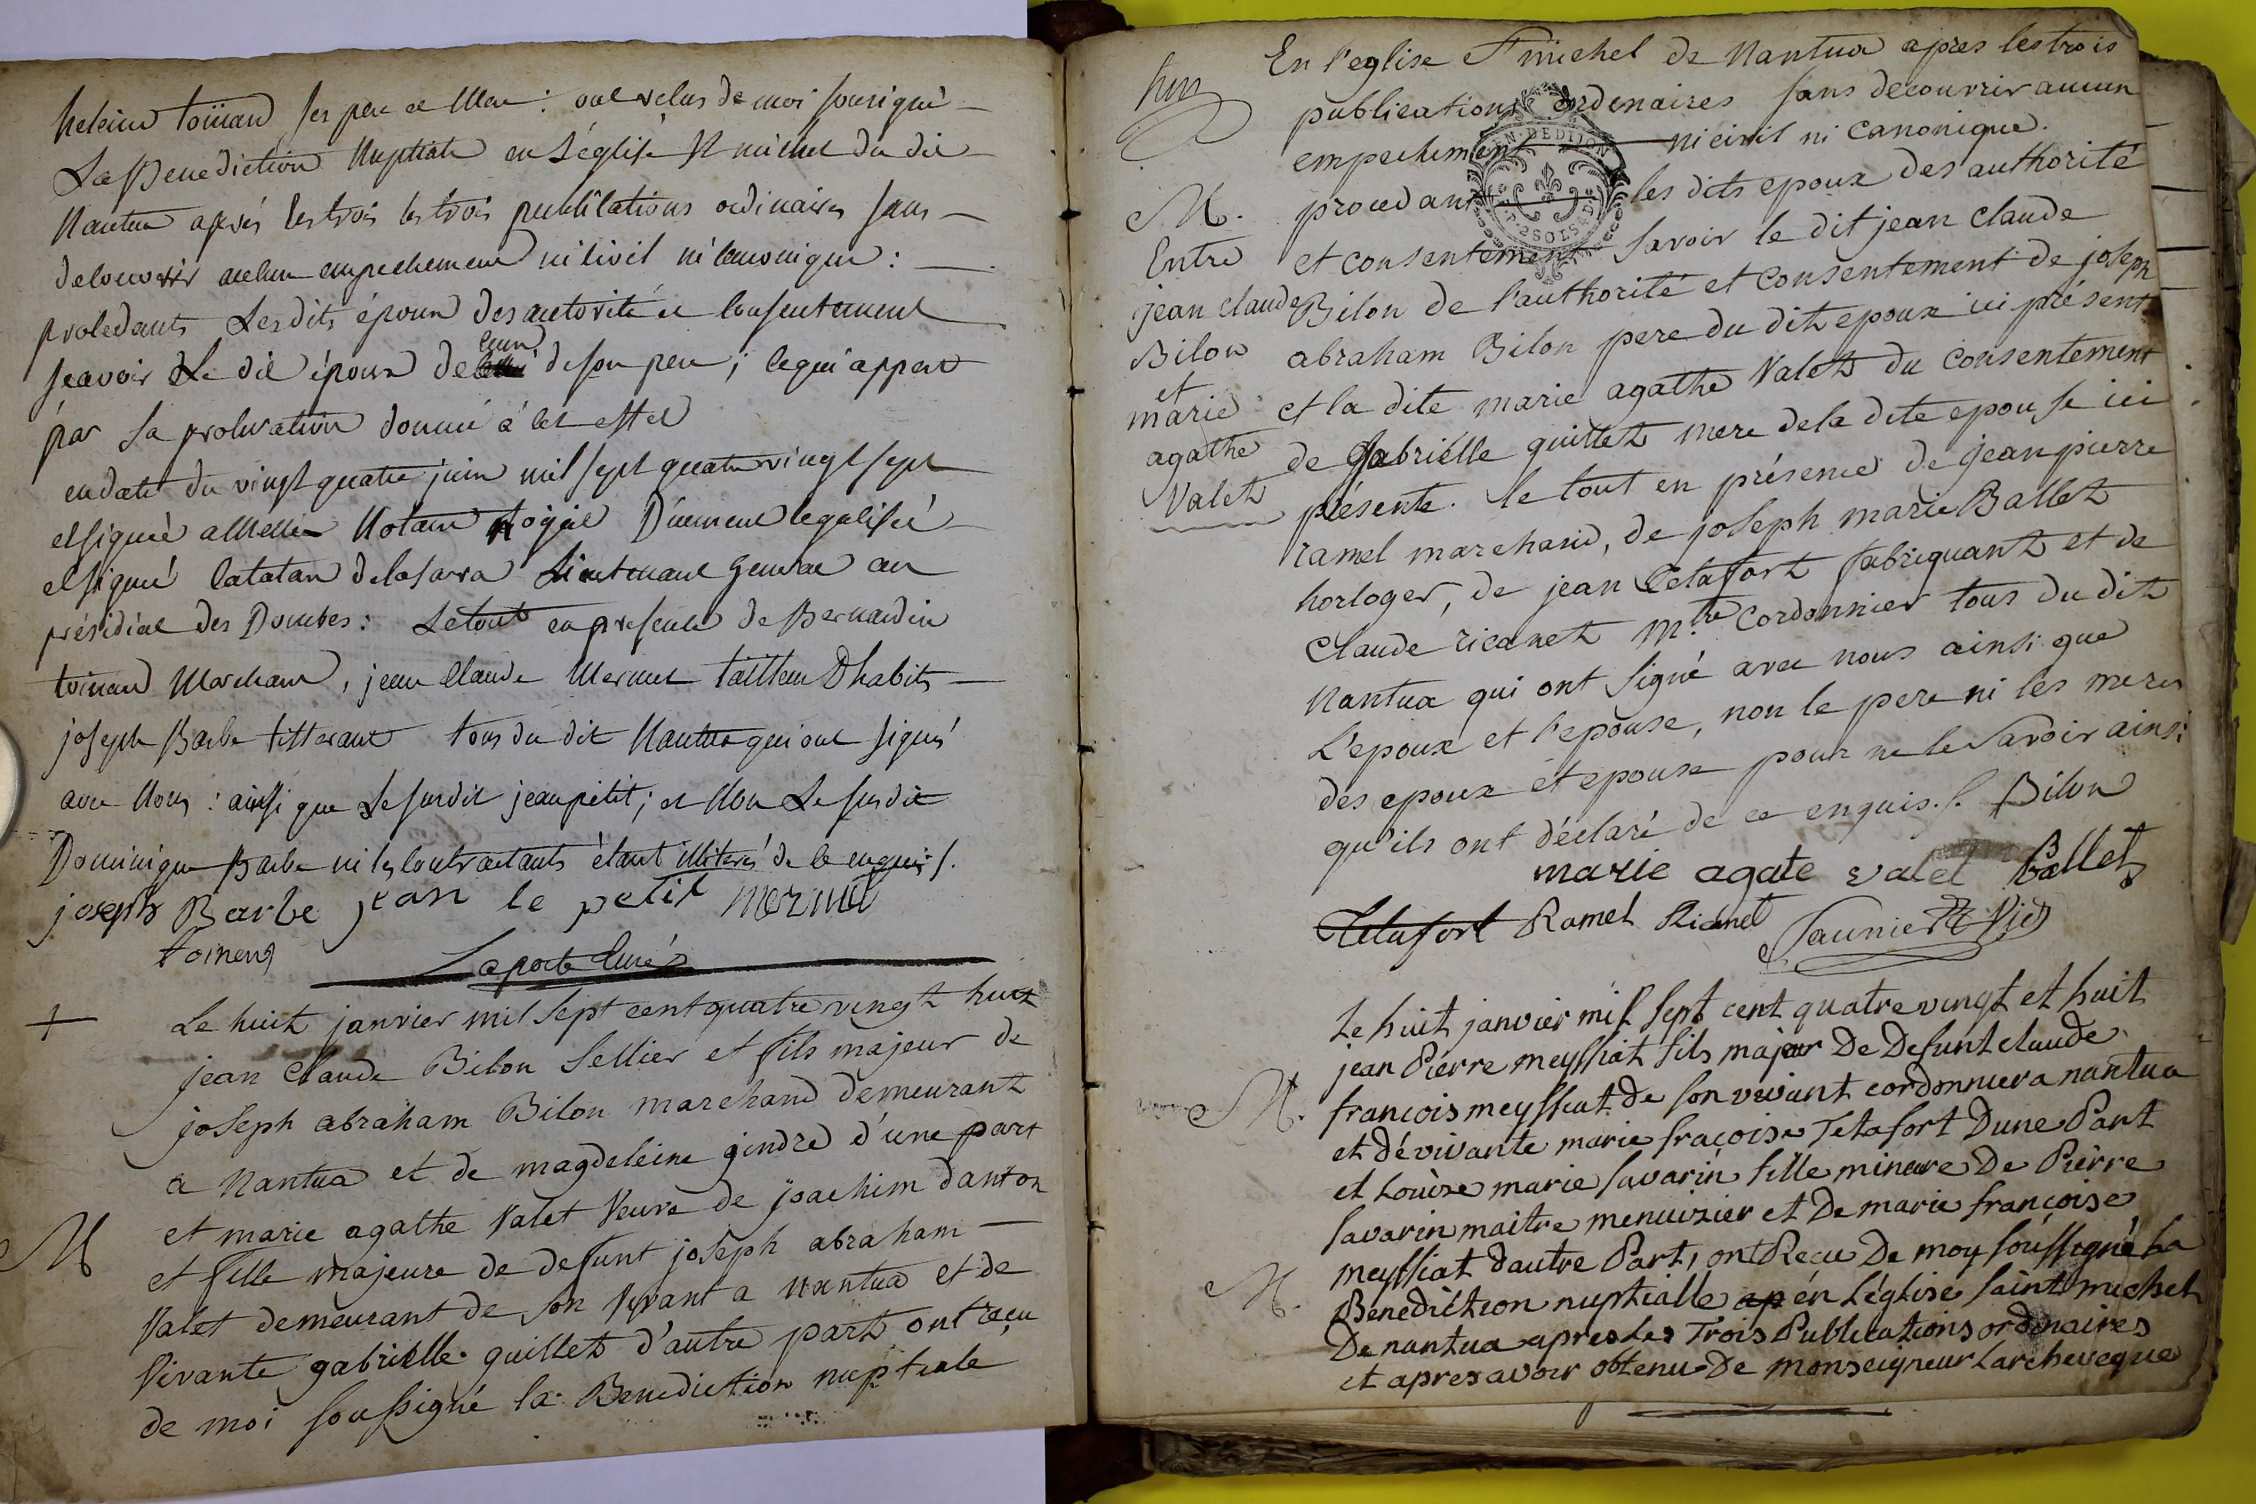 heleine toinan ses pere et Mere : ont recus de moi sousigné
La Benediction Nuptiale en L'église St michel du dit
Nantua aprés les trois les trois publications ordinaires sans
decouvrir aucun empechement ni civil ni canonique :
procedants Lesdits époux des autorité et consentement
scavoir Le dit époux de celui de son pere ; ce qui appert
par sa procuration donnée à cet effet
en date du vingt quatre juin mil sept quatre vingt sept
et signée Notaire Roÿal Dûement legalisée
et signé Lieutenant General au
présidial des Dombes : Le tout en presence de Bernardin
toinan Marchand, jean Claude Mermet tailleur D'habits
joseph Barbe tisserant tous du dit Nantua qui ont signés
avec Nous : ainsi que Le susdit jean petit ; et Non Le susdit
Dominique Barbe ni les contractants étant illiterés de ce enquis /.
joseph Barbe jean le petit mermet
toinend
Laporte Curé
+ Le huit janvier mil sept cent quatre vingt huit
jean Claude Bilon Sellier et fils majeur de
joseph abraham Bilon marchand demeurant
a Nantua et de magdeleine gindre d'une part
M et marie agathe Valet Veuve de joachim danton
et fille majeure de defunt joseph abraham
Valet demeurant de son Vivant a Nantua et de
Vivante gabrielle guillet d'autre part ont reçu
de moi soussigné la Benediction nuptiale
En l'eglise St michel de Nantua apres les trois
publications ordenaires sans decouvrir aucun
empechement ni civil ni canonique.
M. procedant les dits epoux des authorité
GEN. DE DIJON
2 SOLS 4 D
Entre
jean claude
Bilon
et
marie
agathe
Valet
et consentement Savoir le dit jean claude
Bilon de l'authorité et consentement de joseph
abraham Bilon pere du dit epoux ici présent
et la dite marie agathe Valet du consentement
de Gabriélle guillet mere de la dite epouse ici
présente. le tout en présence de jean pierre
ramel marchand, de joseph marie Ballet
horloger, de jean Tetafort fabriquant et de
Claude ricanet mtre Cordonnier tous du dit
Nantua qui ont signé avec nous ainsi que
L'epoux et l'epouse, non le pere ni les meres
des epoux et epouse pour ne le savoir ainsi
qu'ils ont déclaré de ce enquis ./. Bilon
marie agate valet Ballet
Tetafort Ramel Ricanet Saunier Vic
Le huit janvier mil sept cent quatre vingt et huit
jean Pierre meyssiat fils majeur De Defunt claude
M. francois meyssiat de son vivant cordonnier a nantua
et dé vivante marie fraçoise Tetafort Dune Part
et Louise marie savarin fille mineure De Pierre
savarin maitre menuizier et De marie françoise
meyssiat dautre Part, ont Recu De moy soussigné La
M. Benediction nuptialle ap én Léglise saint michel
De nantua apres Les Trois Publications ordinaires
et apres avoir obtenu De monseigneur Larcheveque